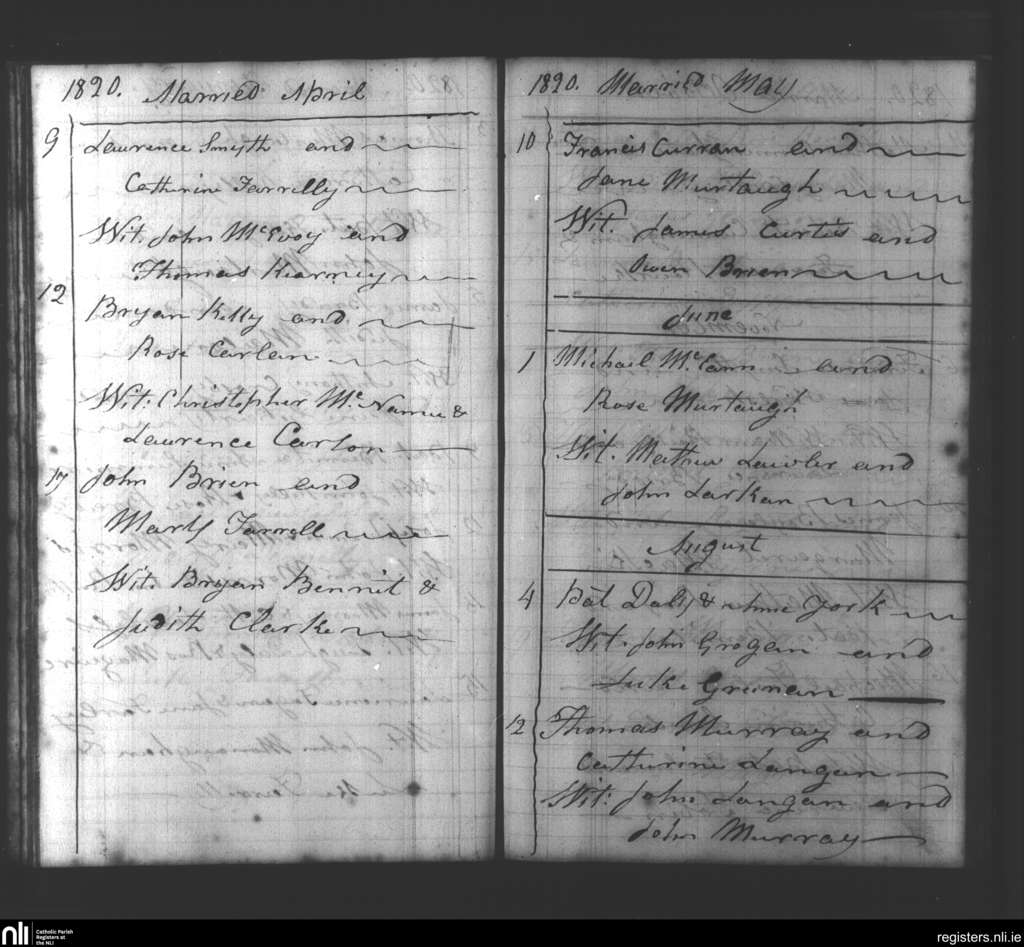 1820. Married April
9 Lawrence Smyth and
Catherine Farrelly
Wit. John McEvoy and
Thomas Kearney
12
Bryan Kelly and
Rose Carlan
Wit: Christopher McNamee &
Lawrence Carlon
17 John Brien and
Mary Farrell
Wit. Bryan Bennit &
Judith Clarke
1820. Married May
10 Francis Curran and
Jane Murtaugh
Wit. James Curtis and
Owen Brien
June
1 Michael McCann and
Rose Murtaugh
Wit. Mathew Lawler and
John Larkan
August
4 Pat Daly & Anne York
Wit. John Grogan and
Luke Greenan
12 Thomas Murray and
Catherine Langan
Wit: John Langan and
John Murray
nli Catholic Parish
Registers at
the NLI
registers.nli.ie